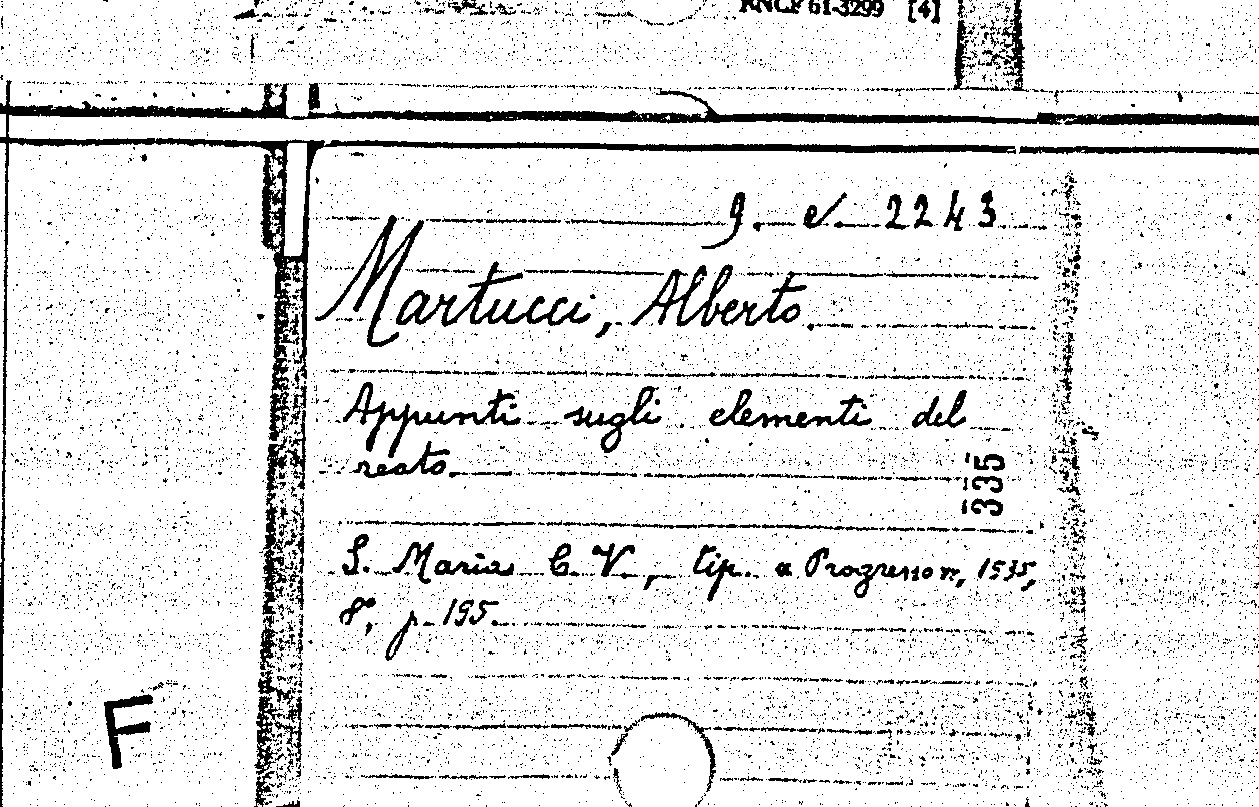 RNCF 61-3299 [4]
g. e. 2243
Martucci, Alberto.
Appunti sugli elementi del
reato.
335
S. Maria C. V., tip. "Progresso", 1935,
8°, p. 195.
F